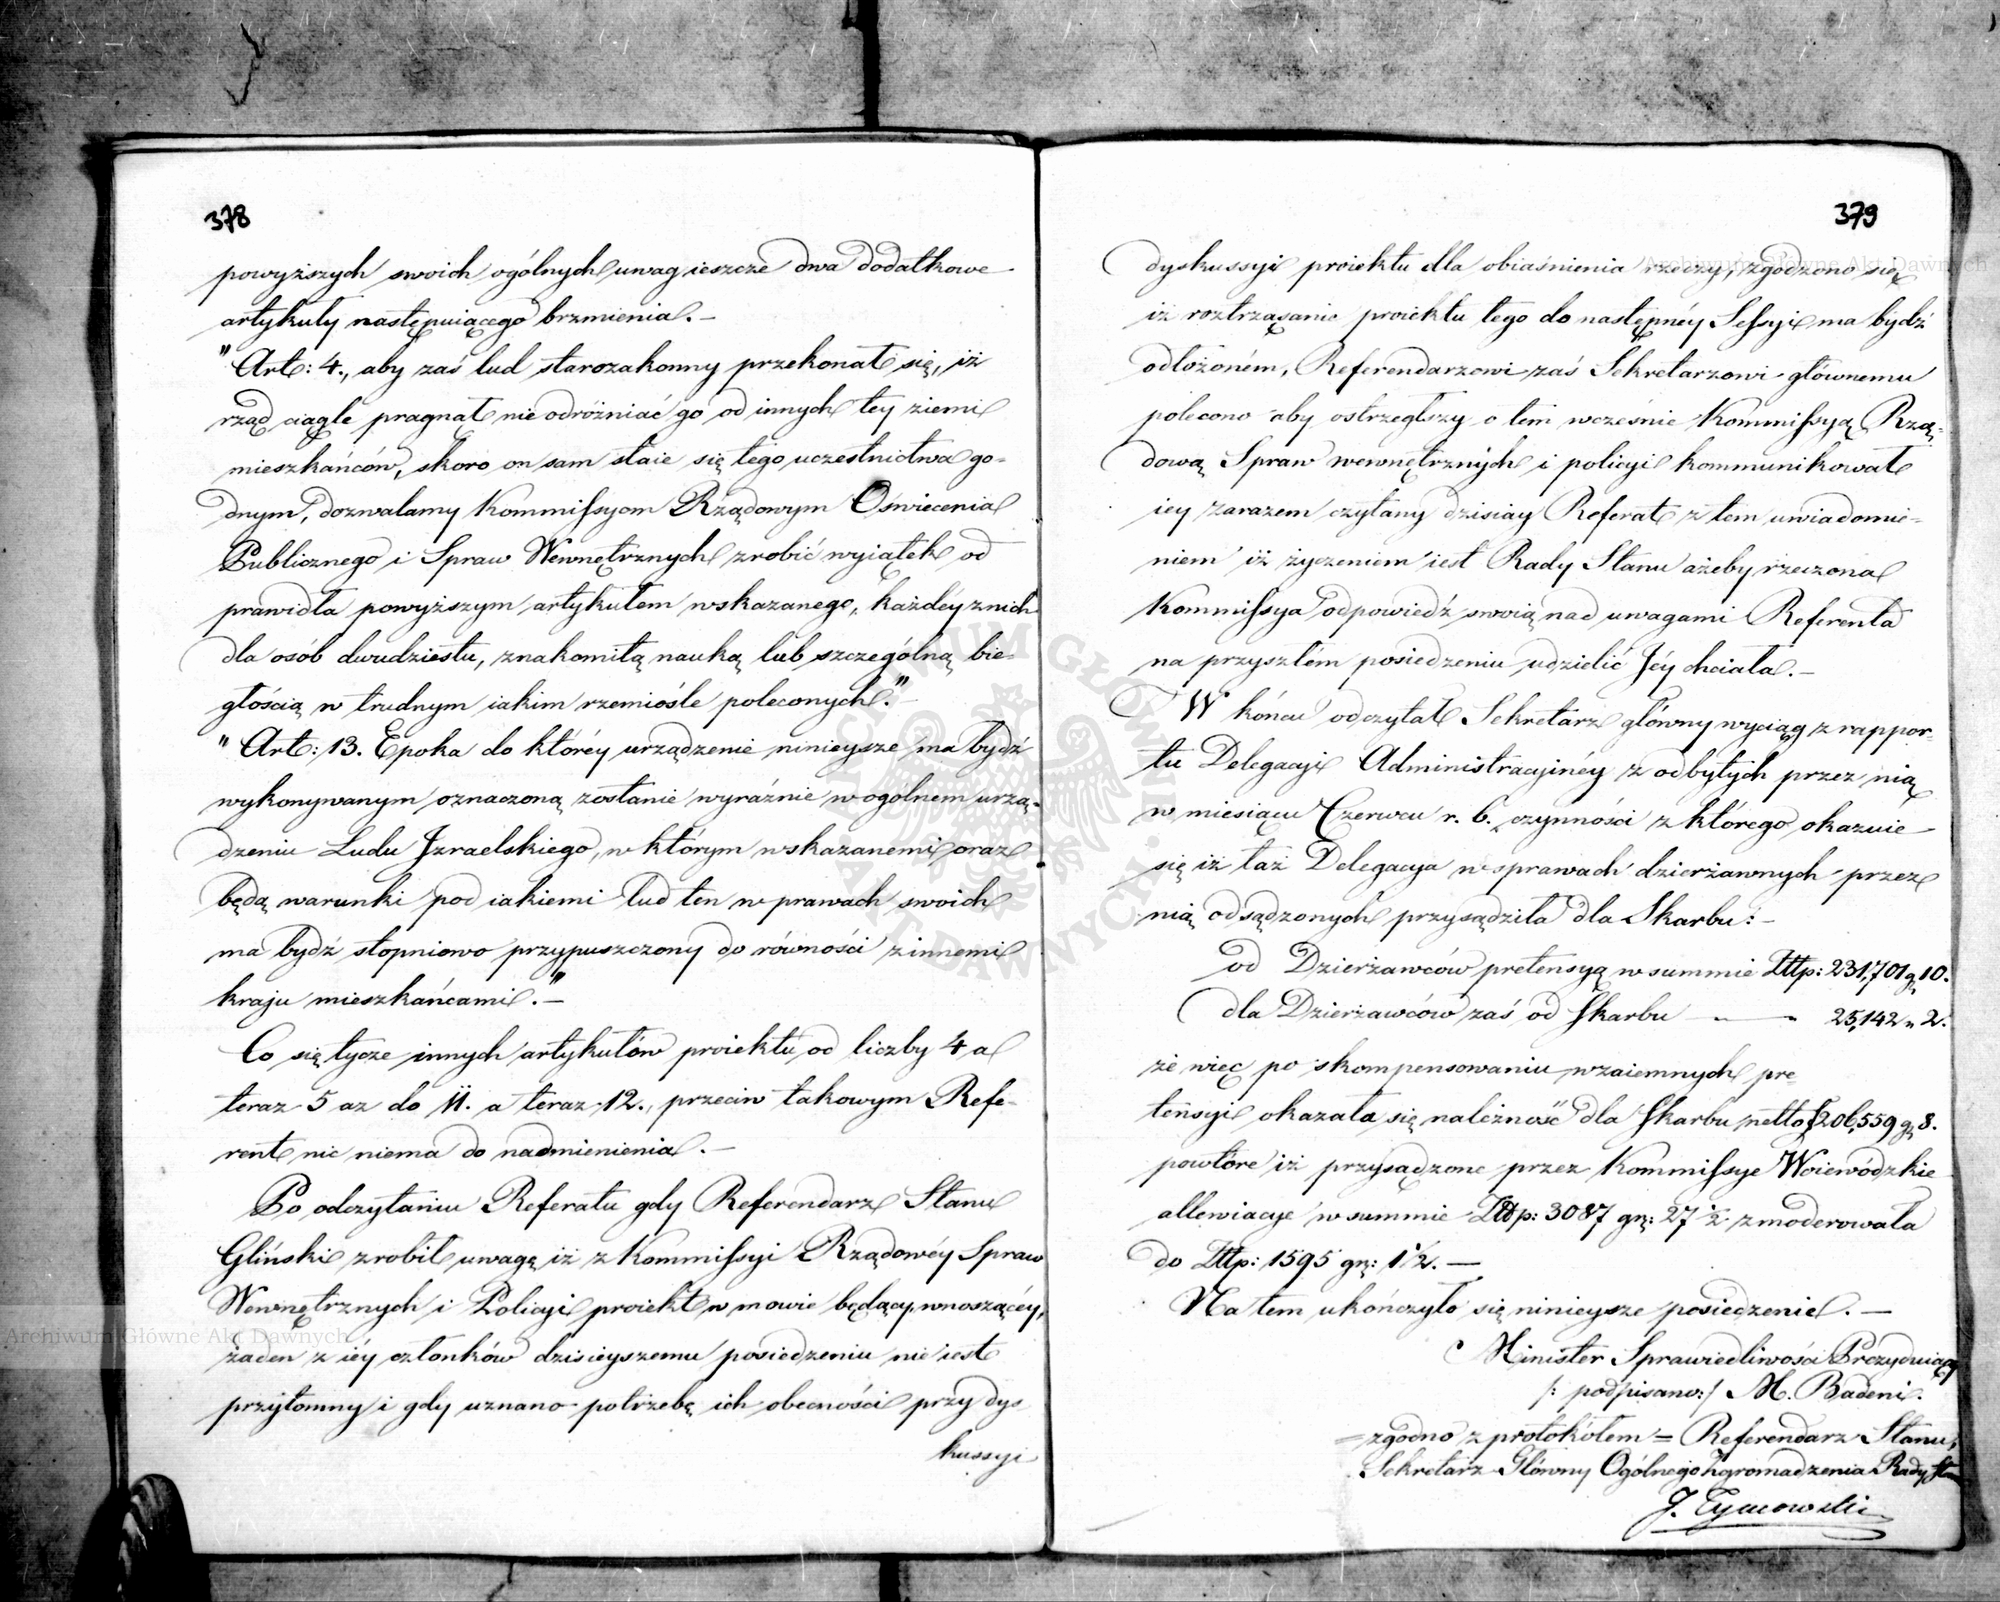 378
powyższych swoich ogólnych uwag ieszcze dwa dodatkowe
artykuły następuiącego brzmienia. –
"Art: 4., aby zaś lud starozakonny przekonał się, iż
rząd ciągle pragnął nie odróżniać go od innych tey ziemi
mieszkańców, skoro on sam staie się tego uczestnictwa go-
dnym, dozwalamy Kommissyom Rządowym Oświecenia
Publicznego i Spraw Wewnętrznych zrobić wyiątek od
prawidła powyższym artykułem wskazanego, każdéy z nich
dla osób dwudziestu, znakomitą nauką lub szczególną bie-
głością w trudnym iakim rzemiośle poleconych." –
"Art: 13. Epoka do któréy urządzenie ninieysze ma bydź
wykonywanym oznaczoną zostanie wyraźnie w ogólnem urzą-
dzeniu Ludu Izraelskiego, w którym wskazanemi oraz
będą warunki pod iakiemi lud ten w prawach swoich
ma bydź stopniowo przypuszczony do równości z innemi
kraju mieszkańcami." –
Co się tycze innych artykułów proiektu od liczby 4 a
teraz 5 az do 11. a teraz 12., przeciw takowym Refe-
rent nic niema do nadmienienia. –
Po odczytaniu Referatu gdy Referendarz Stanu
Gliński zrobił uwagę iż z Kommissyi Rządowéy Spraw
Wewnętrznych i Policyi proiekt w mowie będący wnoszącéy,
żaden z iéy członków dzisieyszemu posiedzeniu nie iest
przytomny i gdy uznano potrzebę ich obecności przy dys
kussyi
379
dyskussyi proiektu dla obiaśnienia rzeczy, zgodzono się
iż roztrząsanie proiektu tego do następnéy Sessyi ma bydź
odłożoném, Referendarzowi zaś Sekretarzowi głównemu
polecono aby ostrzegłszy o tem wcześnie Kommissyą Rzą-
dową Spraw wewnętrznych i policyi kommunikował
iey zarazem czytany dzisiay Referat z tem uwiadomie-
niem iż życzeniem iest Rady Stanu ażeby rzeczona
Kommissya odpowiedź swoią nad uwagami Referenta
na przyszłém posiedzeniu udzielić Jéy chciała. –
W końcu odczytał Sekretarz główny wyciąg z rappor-
tu Delegacyi Administracyinéy z odbytych przez nią
w miesiącu Czerwcu r. b. czynności z którego okazuie
się iż taż Delegacya w sprawach dzierżawnych przez
nią odsądzonych przysądziła dla Skarbu: –
od Dzierżawców pretensyą w summie Złłp: 231,701 g 10.
dla Dzierżawców zaś od Skarbu – " – " 25,142 " 2.
że więc po skompensowaniu wzaiemnych pre-
tensyi okazała się należność dla Skarbu netto f 206,559 g 8.
powtóre iż przysądzone przez Kommissye Woiewódzkie
allewiacye w summie Złłp: 3087 gr: 27 1/2 zmoderowała
do Złłp: 1595 gr: 1 1/2. –
Na tem ukończyło się ninieysze posiedzenie. –
Minister Sprawiedliwości Prezyduiący
/: podpisano :/ M. Badeni.
= zgodno z protokółem = Referendarz Stanu,
Sekretarz Główny Ogólnego Zgromadzenia Rady Stanu
J. Tymowski
Archiwum Główne Akt Dawnych
Archiwum Główne Akt Dawnych
Archiwum Główne Akt Dawnych
ARCHIWUM GŁÓWNE AKT DAWNYCH